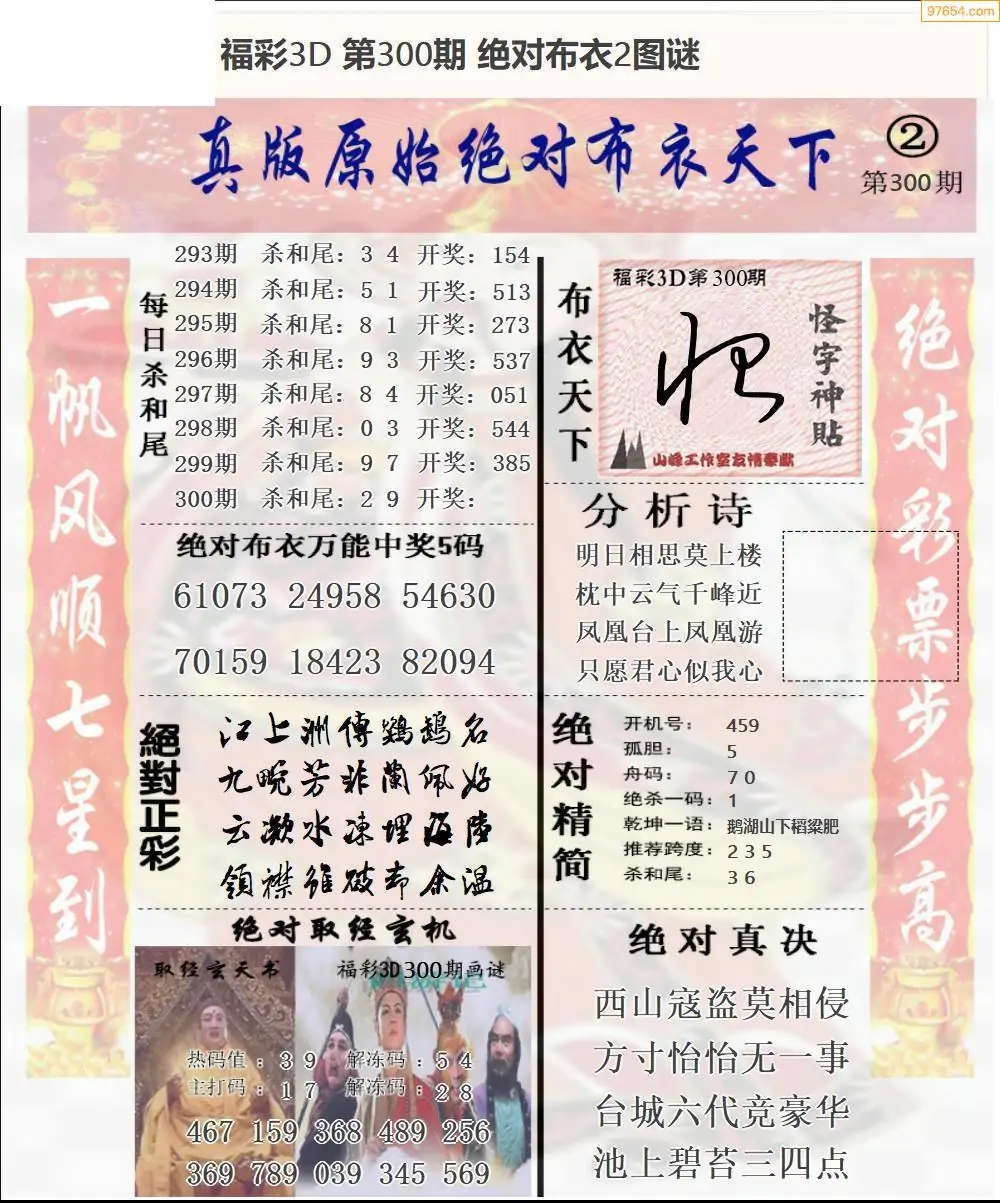 97654.com
福彩3D 第300期 绝对布衣2图谜
真版原始绝对布衣天下
②
第300期
一帆风顺七星到
每日杀和尾
293期 杀和尾：3 4 开奖：154
294期 杀和尾：5 1 开奖：513
295期 杀和尾：8 1 开奖：273
296期 杀和尾：9 3 开奖：537
297期 杀和尾：8 4 开奖：051
298期 杀和尾：0 3 开奖：544
299期 杀和尾：9 7 开奖：385
300期 杀和尾：2 9 开奖：
绝对布衣万能中奖5码
61073 24958 54630
70159 18423 82094
絕對正彩
江上洲傅鸚鵡名
九畹芳菲蘭佩好
云凝水凍埋海陸
領襟雖破却余温
绝对取经玄机
取经玄天书
福彩3D300期画谜
热码值：3 9 解冻码：5 4
主打码：1 7 解冻码：2 8
467 159 368 489 256
369 789 039 345 569
布衣天下
福彩3D第300期
怪字神贴
山峰工作室友情奉献
分析诗
明日相思莫上楼
枕中云气千峰近
凤凰台上凤凰游
只愿君心似我心
绝对精简
开机号：459
孤胆：5
舟码：7 0
绝杀一码：1
乾坤一语：鹅湖山下稻粱肥
推荐跨度：2 3 5
杀和尾：3 6
绝对真决
西山寇盗莫相侵
方寸怡怡无一事
台城六代竞豪华
池上碧苔三四点
绝对彩票步步高